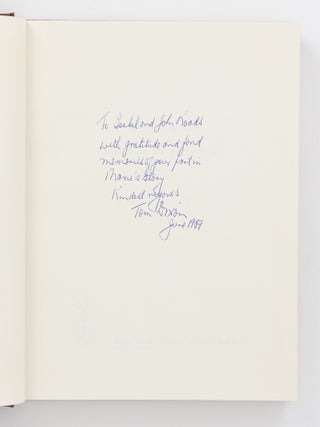 To Isabel and John Roads
with gratitude and fond
memories of your part in
Moxie's Story
Kindest regards
Tom Dixon
June 1989